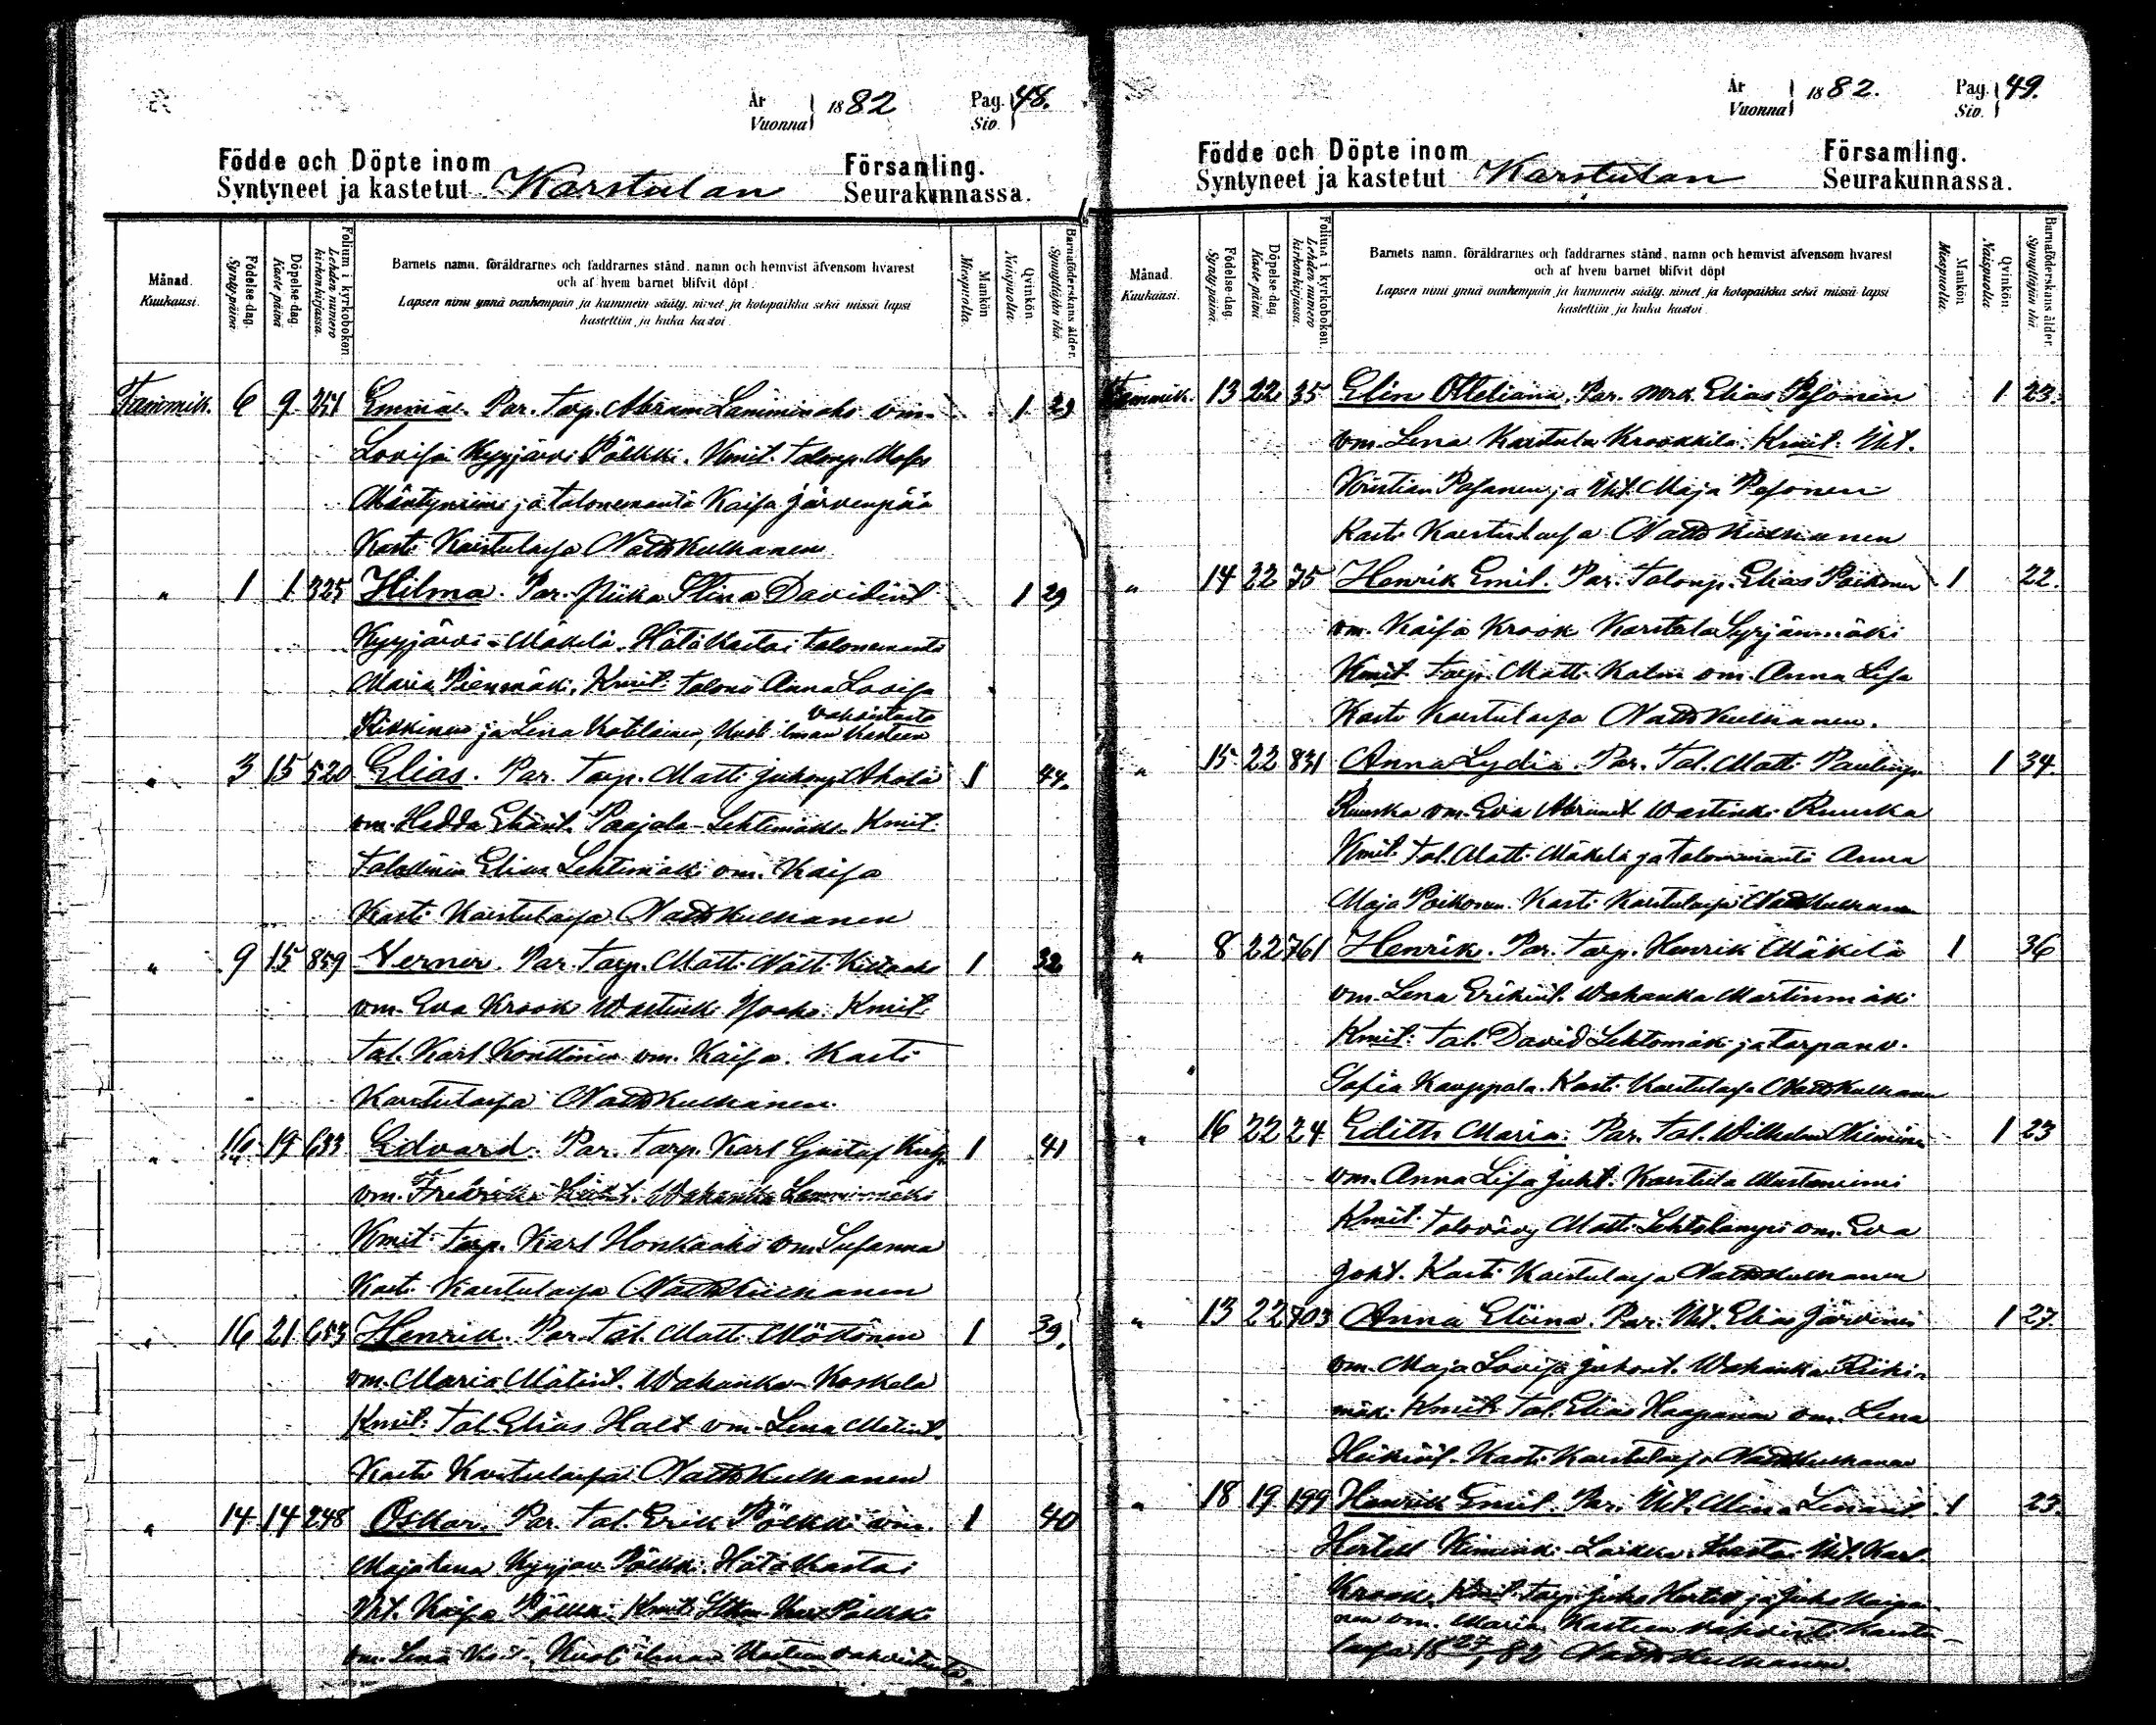 År
Vuonna
1882
Pag.
Siv.
48.
Födde och Döpte inom
Syntyneet ja kastetut
Karstulan
Församling.
Seurakunnassa.
Månad.
Kuukausi.
Födelse-dag.
Synty-päivä.
Döpelse-dag.
Kaste-päivä.
Folium i kyrkoboken.
Lehden numero
kirkonkirjassa.
Barnets namn, föräldrarnes och faddrarnes stånd, namn och hemvist äfvensom hvarest
och af hvem barnet blifvit döpt.
Lapsen nimi ynnä vanhempain ja kummein sääty, nimet ja kotopaikka sekä missä lapsi
kastettiin ja kuka kastoi.
Mankön
Miespuolia.
Qvinkön.
Naispuolia.
Barnaföderskans ålder.
Synnyttäjän ikä.
Tammik. 6 9 251 Emma. Par. Torp. Abram Lamminaho vm. 1 29
Lovisa Kyyjärvi Pölkki. Kmit. talonp. Moses
Mäntyniemi ja talonemäntä Kaisa Järvenpää
Kasti Karstulassa Matts Kulhanen
" 1 1 325 Hilma. Par. Piika Stina Davidint. 1 29
Kyyjärvi-Mäkelä. Hätäkastoi talonemäntä
Maria Pienmäki. Kmit. Anna Lovisa
vahvistusta
Rikkinen ja Lena Kotilainen, Kuoli ilman kasteen
" 3 15 520 Elias. Par. Torp. Matti Juhonp. Ahola 1 44.
vm. Hedda Eliänt. Paajala-Lehtimäki. Kmit.
Elias Lehtimäki vm. Kaisa
Kasti Karstulassa Matts Kulhanen
" 9 15 859 Verner. Par. Torp. Matti Matti 1 32
vm. Eva Krook Wastinki Kmit.
Tal. Karl Konttinen vm. Kaisa. Kasti
Karstulassa Matts Kulhanen.
" 16 19 633 Edvard. Par. Torp. Karl Gustaf 1 41
vm. Fredrika Wahanka Lamminmäki
Kmit. Torp. Karl Honkaaho vm. Susanna
Kasti Karstulassa Matts Kulhanen
" 16 21 653 Henrik. Par. Tal. Matti Möttönen 1 39.
vm. Maria Mätint. Wahanka-Koskela
Kmit: Tal. Elias Halt vm. Lena Matint.
Kasti Karstulassa Matts Kulhanen
" 14 14 248 Oskar. Par. Tal. Erik Pölkki vm. 1 40
Majalena Kyyjärv. Pölkki. Hätäkastoi
Kaisa Pölkki. Kmit. Pölkki
vm. Lena Kuoli ilman kasteen vahvistusta
År
Vuonna
1882.
Pag.
Siv.
49.
Födde och Döpte inom
Syntyneet ja kastetut
Karstulan
Församling.
Seurakunnassa.
Månad.
Kuukausi.
Födelse-dag.
Synty-päivä.
Döpelse-dag.
Kaste-päivä.
Folium i kyrkoboken.
Lehden numero
kirkonkirjassa.
Barnets namn, föräldrarnes och faddrarnes stånd, namn och hemvist äfvensom hvarest
och af hvem barnet blifvit döpt
Lapsen nimi ynnä vanhempain ja kummein sääty, nimet ja kotopaikka sekä missä lapsi
kastettiin ja kuka kastoi.
Mankön
Miespuolia.
Qvinkön.
Naispuolia
Barnaföderskans ålder.
Synnyttäjän ikä.
Tammik. 13 22 35 Elin Otteliana. Par. Mrk. Elias Pesonen 1 23.
vm. Lena Karstula Krookkila. Kmit. Itst.
Kristian Pesonen ja Itst. Maja Pesonen
Kasti Karstulassa Matts Kulhanen
" 14 22 75 Henrik Emil. Par. Talonp. Elias Poikonen 1 22.
vm. Kaisa Krook Karstula Syrjänmäki
Kmit. Torp. Matti Kalm vm. Anna Lisa
Kasti Karstulassa Matts Kulhanen.
" 15 22 831 Anna Lydia. Par. Tal. Matti Paulinp. 1 34.
Ruuska vm. Eva Abramt. Wastinki Ruuska
Kmit. Tal. Matti Mäkelä ja talonemäntä Anna
Maja Poikonen. Kasti Karstulassa Matts Kulhanen
" 8 22 761 Henrik. Par. Torp. Henrik Mäkelä 1 36
vm. Lena Erikint. Wahanka Martinmäki
Kmit: Tal. David Lehtomäki ja torpanv.
Sofia Kauppala. Kasti Karstulassa Matts Kulhanen
" 16 22 24 Edith Maria. Par. Tal. Wilhelm Nieminen 1 23
vm. Anna Lisa Juht. Karstula Mustaniemi
Kmit. Talovävy Matti Lehtolampi vm. Eva
Joht. Kasti Karstulassa Matts Kulhanen
" 13 22 703 Anna Eliina. Par. Itst. Elias Järvinen 1 27.
vm. Maja Lovisa Juhont. Wahanka Riihi-
mäki Kmit. Tal. Elias Haapanen vm. Lena
Heikint. Kasti Karstulassa Matts Kulhanen
" 18 19 199 Henrik Emil. Par. Itst. Mina Linant. 1 23.
Hertell Kiminki. Kastoi Itst. Karl
Krook. Kmit. Torp. Juho Hertell ja Juho
nen vm. Maria. Kasteen vahvisti Karstu-
lassa 18 27/1 82 Matts Kulhanen.